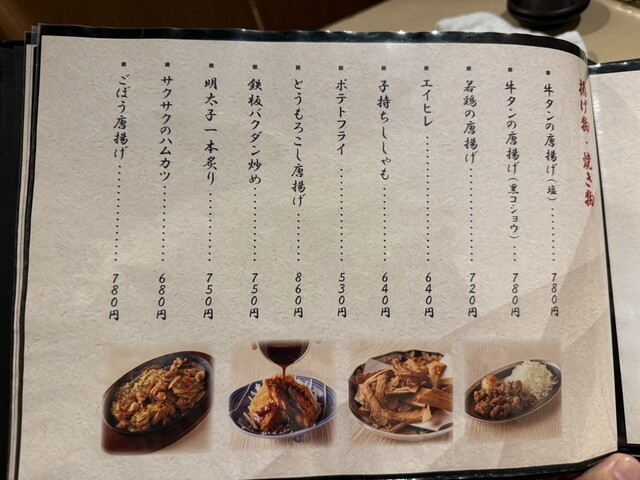 揚げ物・焼き物
■ 牛タンの唐揚げ(塩)………780円
■ 牛タンの唐揚げ(黒コショウ)…780円
■ 若鶏の唐揚げ………720円
■ エイヒレ………640円
■ 子持ちししゃも………640円
■ ポテトフライ………530円
■ とうもろこし唐揚げ………860円
■ 鉄板バクダン炒め………750円
■ 明太子一本炙り………750円
■ サクサクのハムカツ………680円
■ ごぼう唐揚げ………780円